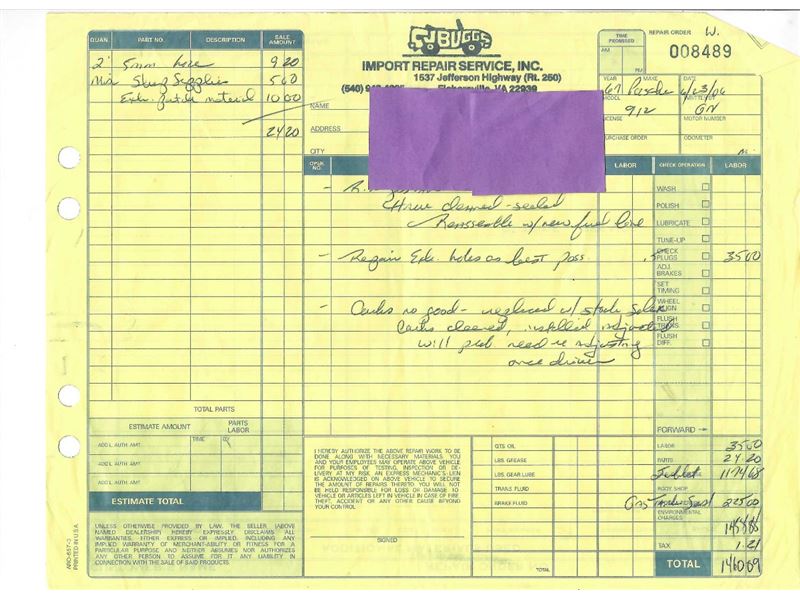 CJ BUGGS
IMPORT REPAIR SERVICE, INC.
1537 Jefferson Highway (Rt. 250)
(540) Fishersville, VA 22939
TIME PROMISED
AM
PM
REPAIR ORDER W.
008489
YEAR MAKE DATE
67 Porsche 6/23/06
MODEL WRITTEN BY
912 GN
LICENSE MOTOR NUMBER
PURCHASE ORDER ODOMETER
QUAN. PART NO. DESCRIPTION SALE AMOUNT
2' 5mm hose 9.20
Misc 5 00
Exh. patch material 10 00
24 20
NAME
ADDRESS
CITY
OPER. NO. LABOR CHECK OPERATION LABOR
cleaned - sealed
Reassemble w/ new fuel line
- Repair Exh. holes as best poss. .5 35 00
- Carbs no good - replaced w/ stock Solex
Carbs cleaned, installed adjusted
will prob need re adjusting
once driven
WASH
POLISH
LUBRICATE
TUNE-UP
CHECK PLUGS
ADJ. BRAKES
SET TIMING
WHEEL ALIGN
FLUSH TRANS
FLUSH DIFF.
TOTAL PARTS
FORWARD →
ESTIMATE AMOUNT PARTS LABOR
ADD'L. AUTH. AMT. TIME BY
ADD'L. AUTH. AMT.
ADD'L. AUTH. AMT.
ESTIMATE TOTAL
I HEREBY AUTHORIZE THE ABOVE REPAIR WORK TO BE
DONE ALONG WITH NECESSARY MATERIALS. YOU
AND YOUR EMPLOYEES MAY OPERATE ABOVE VEHICLE
FOR PURPOSES OF TESTING, INSPECTION OR DE-
LIVERY AT MY RISK. AN EXPRESS MECHANIC'S LIEN
IS ACKNOWLEDGED ON ABOVE VEHICLE TO SECURE
THE AMOUNT OF REPAIRS THERETO. YOU WILL NOT
BE HELD RESPONSIBLE FOR LOSS OR DAMAGE TO
VEHICLE OR ARTICLES LEFT IN VEHICLE IN CASE OF FIRE
THEFT, ACCIDENT OR ANY OTHER CAUSE BEYOND
YOUR CONTROL.
SIGNED
QTS OIL
LBS GREASE
LBS GEAR LUBE
TRANS FLUID
BRAKE FLUID
TOTAL
LABOR 35 00
PARTS 24 20
1174 68
BODY SHOP
Gas Tank 225 00
ENVIRONMENTAL CHARGES
1458 88
TAX 1.21
TOTAL 1460 09
UNLESS OTHERWISE PROVIDED BY LAW, THE SELLER (ABOVE
NAMED DEALERSHIP) HEREBY EXPRESSLY DISCLAIMS ALL
WARRANTIES, EITHER EXPRESS OR IMPLIED, INCLUDING ANY
IMPLIED WARRANTY OF MERCHANT-ABILITY OR FITNESS FOR A
PARTICULAR PURPOSE AND NEITHER ASSUMES NOR AUTHORIZES
ANY OTHER PERSON TO ASSUME FOR IT ANY LIABILITY IN
CONNECTION WITH THE SALE OF SAID PRODUCTS.
ARO-657-3
PRINTED IN U.S.A.